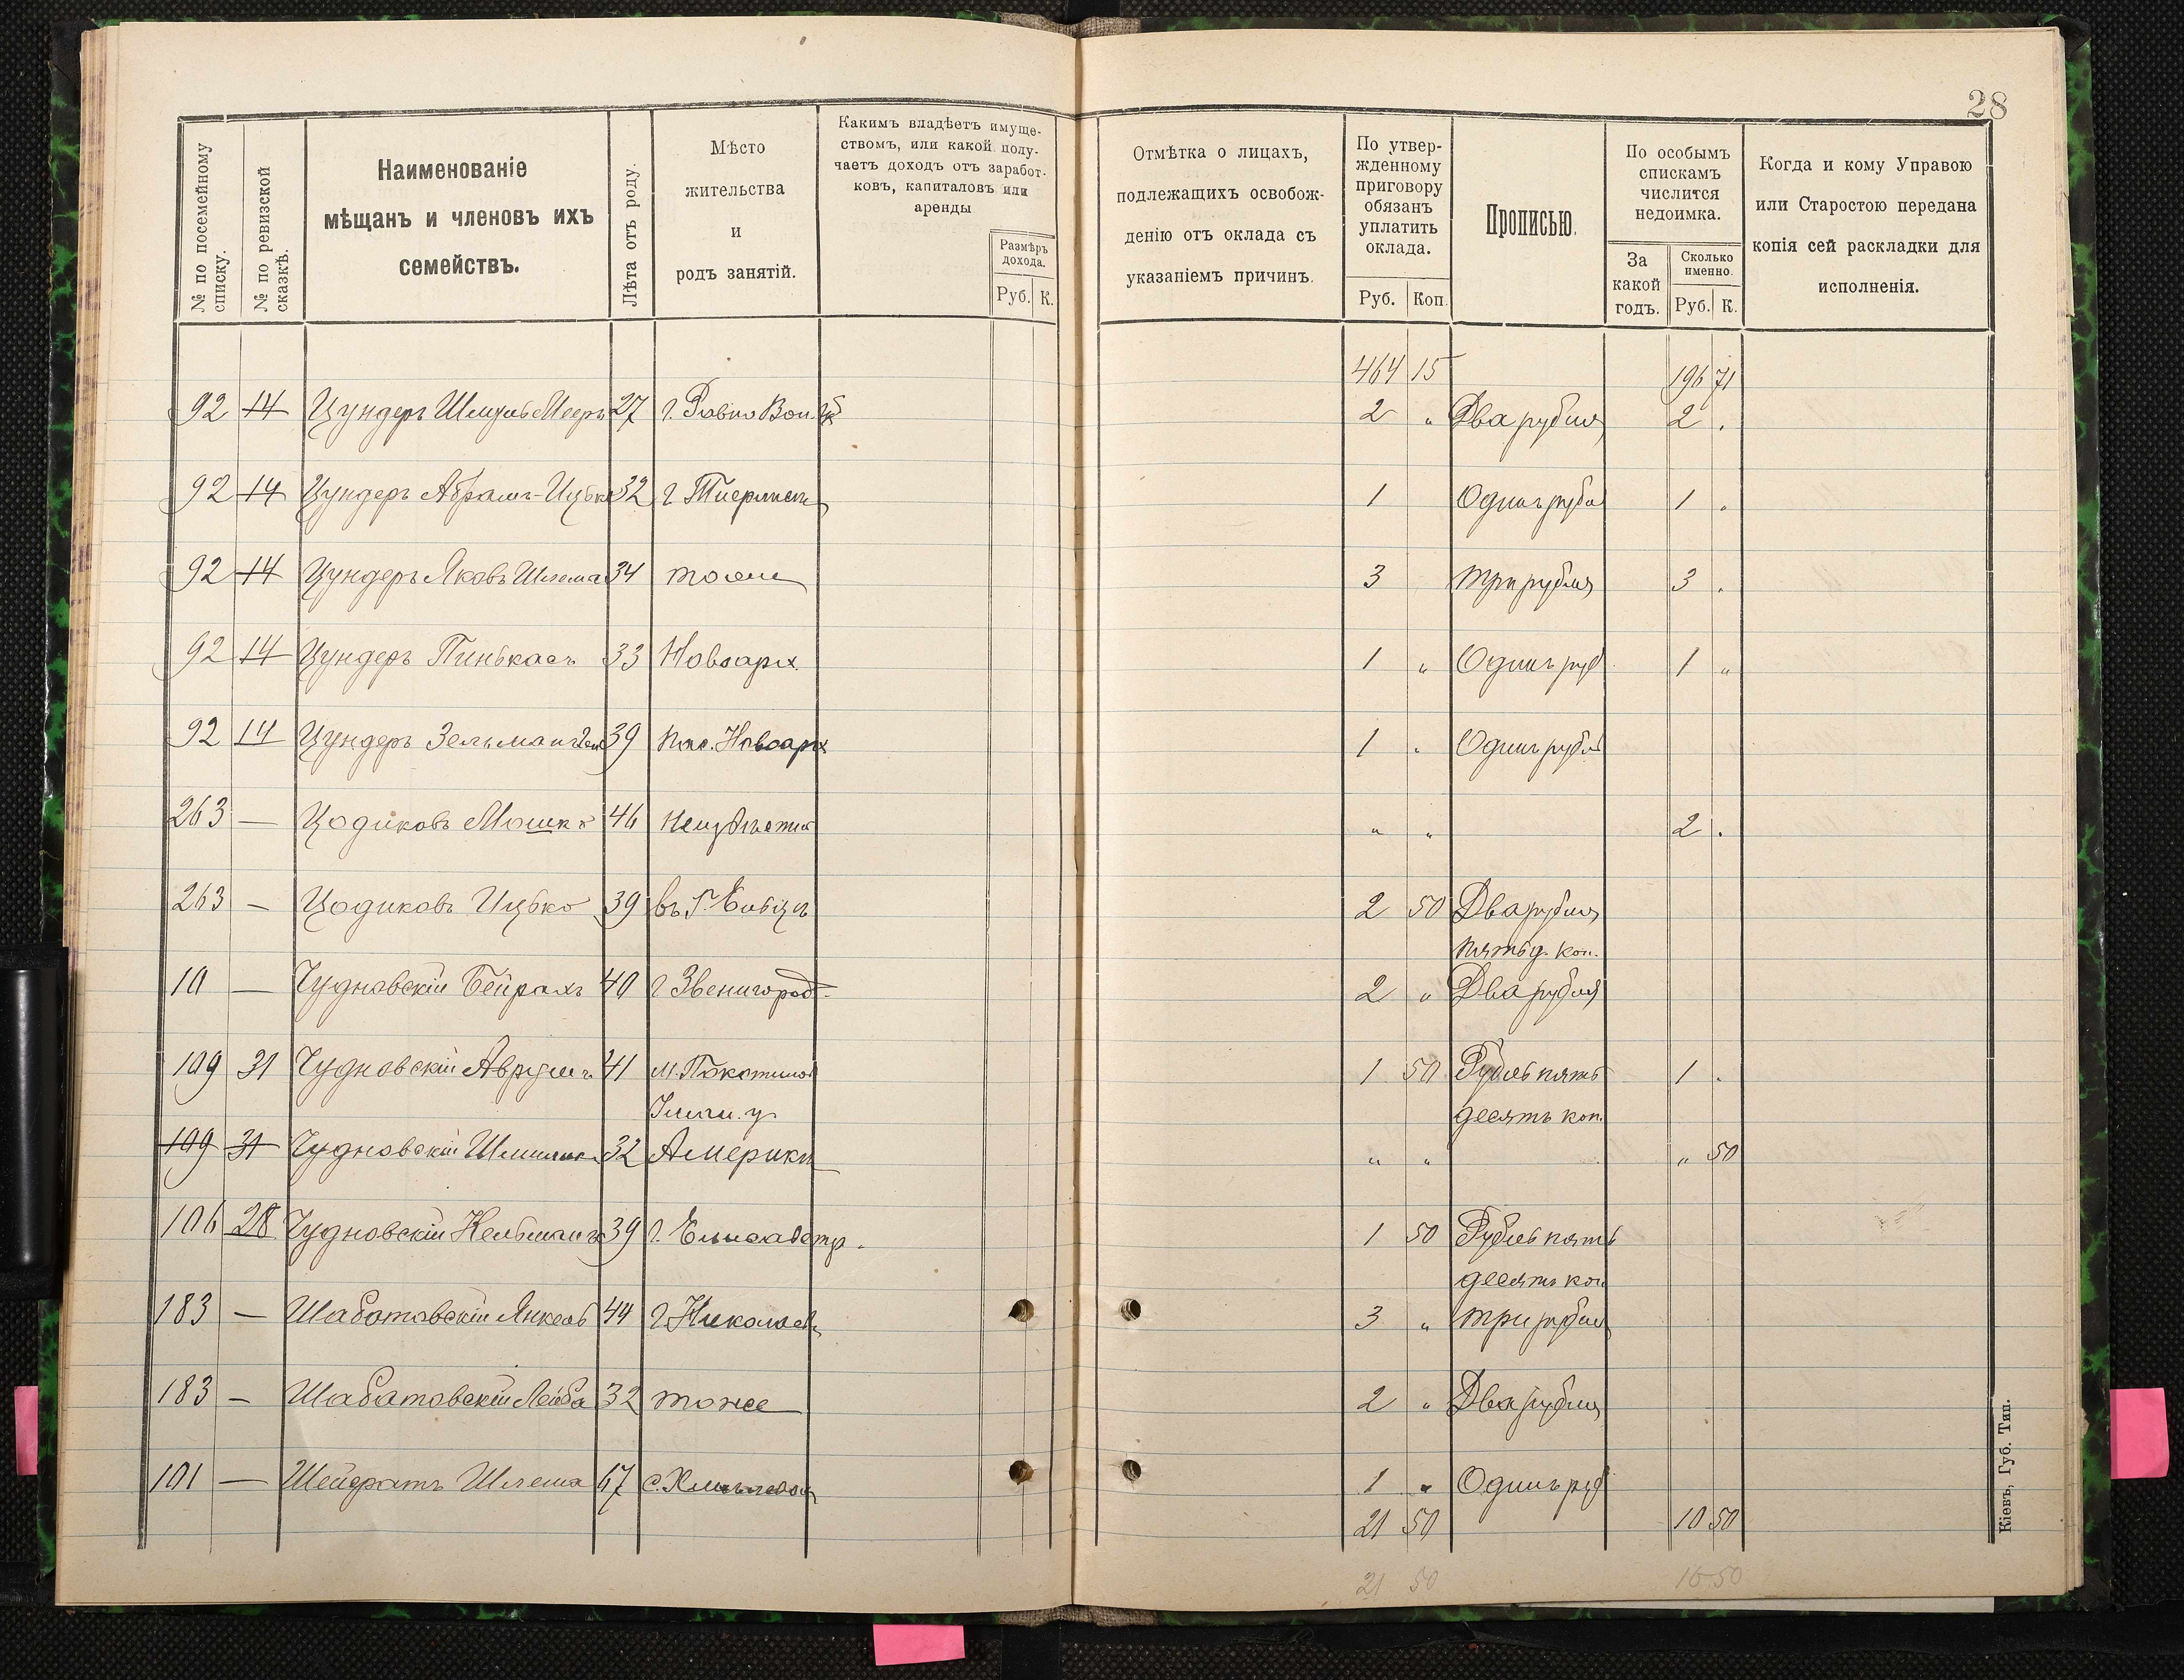 28
№ по посемейному списку.
№ по ревизской сказкѣ.
Наименованіе
мѣщанъ и членовъ ихъ
семействъ.
Лѣта отъ роду.
Мѣсто
жительства
и
родъ занятій.
Какимъ владѣетъ имуще-
ствомъ, или какой полу-
чаетъ доходъ отъ заработ-
ковъ, капиталовъ или
аренды
Размѣръ
дохода.
Руб. К.
Отмѣтка о лицахъ,
подлежащихъ освобож-
денію отъ оклада съ
указаніемъ причинъ.
По утвер-
жденному
приговору
обязанъ
уплатить
оклада.
Руб. Коп.
Прописью.
По особымъ
спискамъ
числится
недоимка.
За
какой
годъ.
Сколько
именно.
Руб. К.
Когда и кому Управою
или Старостою передана
копія сей раскладки для
исполненія.
464 15 196 71
92 14 Цундеръ Шмуль Мееръ 27 г. Ровно Вол. 2 " Два рубля 2 .
92 14 Цундеръ Абрамъ-Ицько 32 г 1 Одинъ рубль 1 .
92 14 Цундеръ Яковъ Шлема 34 тоже 3 три рубля 3 .
92 14 Цундеръ Пинькасъ 33 Новоарх 1 " Одинъ руб 1 "
92 14 Цундеръ Зельман 39 пос. Новоарх 1 . Одинъ рубль
263 — Цодиковъ Мошко 46 Неизвѣстно " " 2 .
263 — Цодиковъ Ицько 39 въ Г. 2 50 Два рубля
пятьд. коп.
10 — Чудновскій Бейрахъ 40 г Звенигород. 2 " Два рубля
109 31 Чудновскій Аврумъ 41 м. Покотилов 1 50 Рубль пять 1 .
Уман. у. десять коп.
109 31 Чудновскій 32 Америки " " " 50
106 28 Чудновскій Кельманъ 39 г. Елисаветгр. 1 50 Рубль пять
десять коп
183 — Шаботовскій Янкель 44 г Николаевъ 3 " три рубля
183 — Шаботовскій Лейба 32 тоже 2 " Два рубля
101 — Шлема 47 с. 1 " Одинъ руб
21 50 10 50
21 50 10 50
Кіевъ, Губ. Тип.